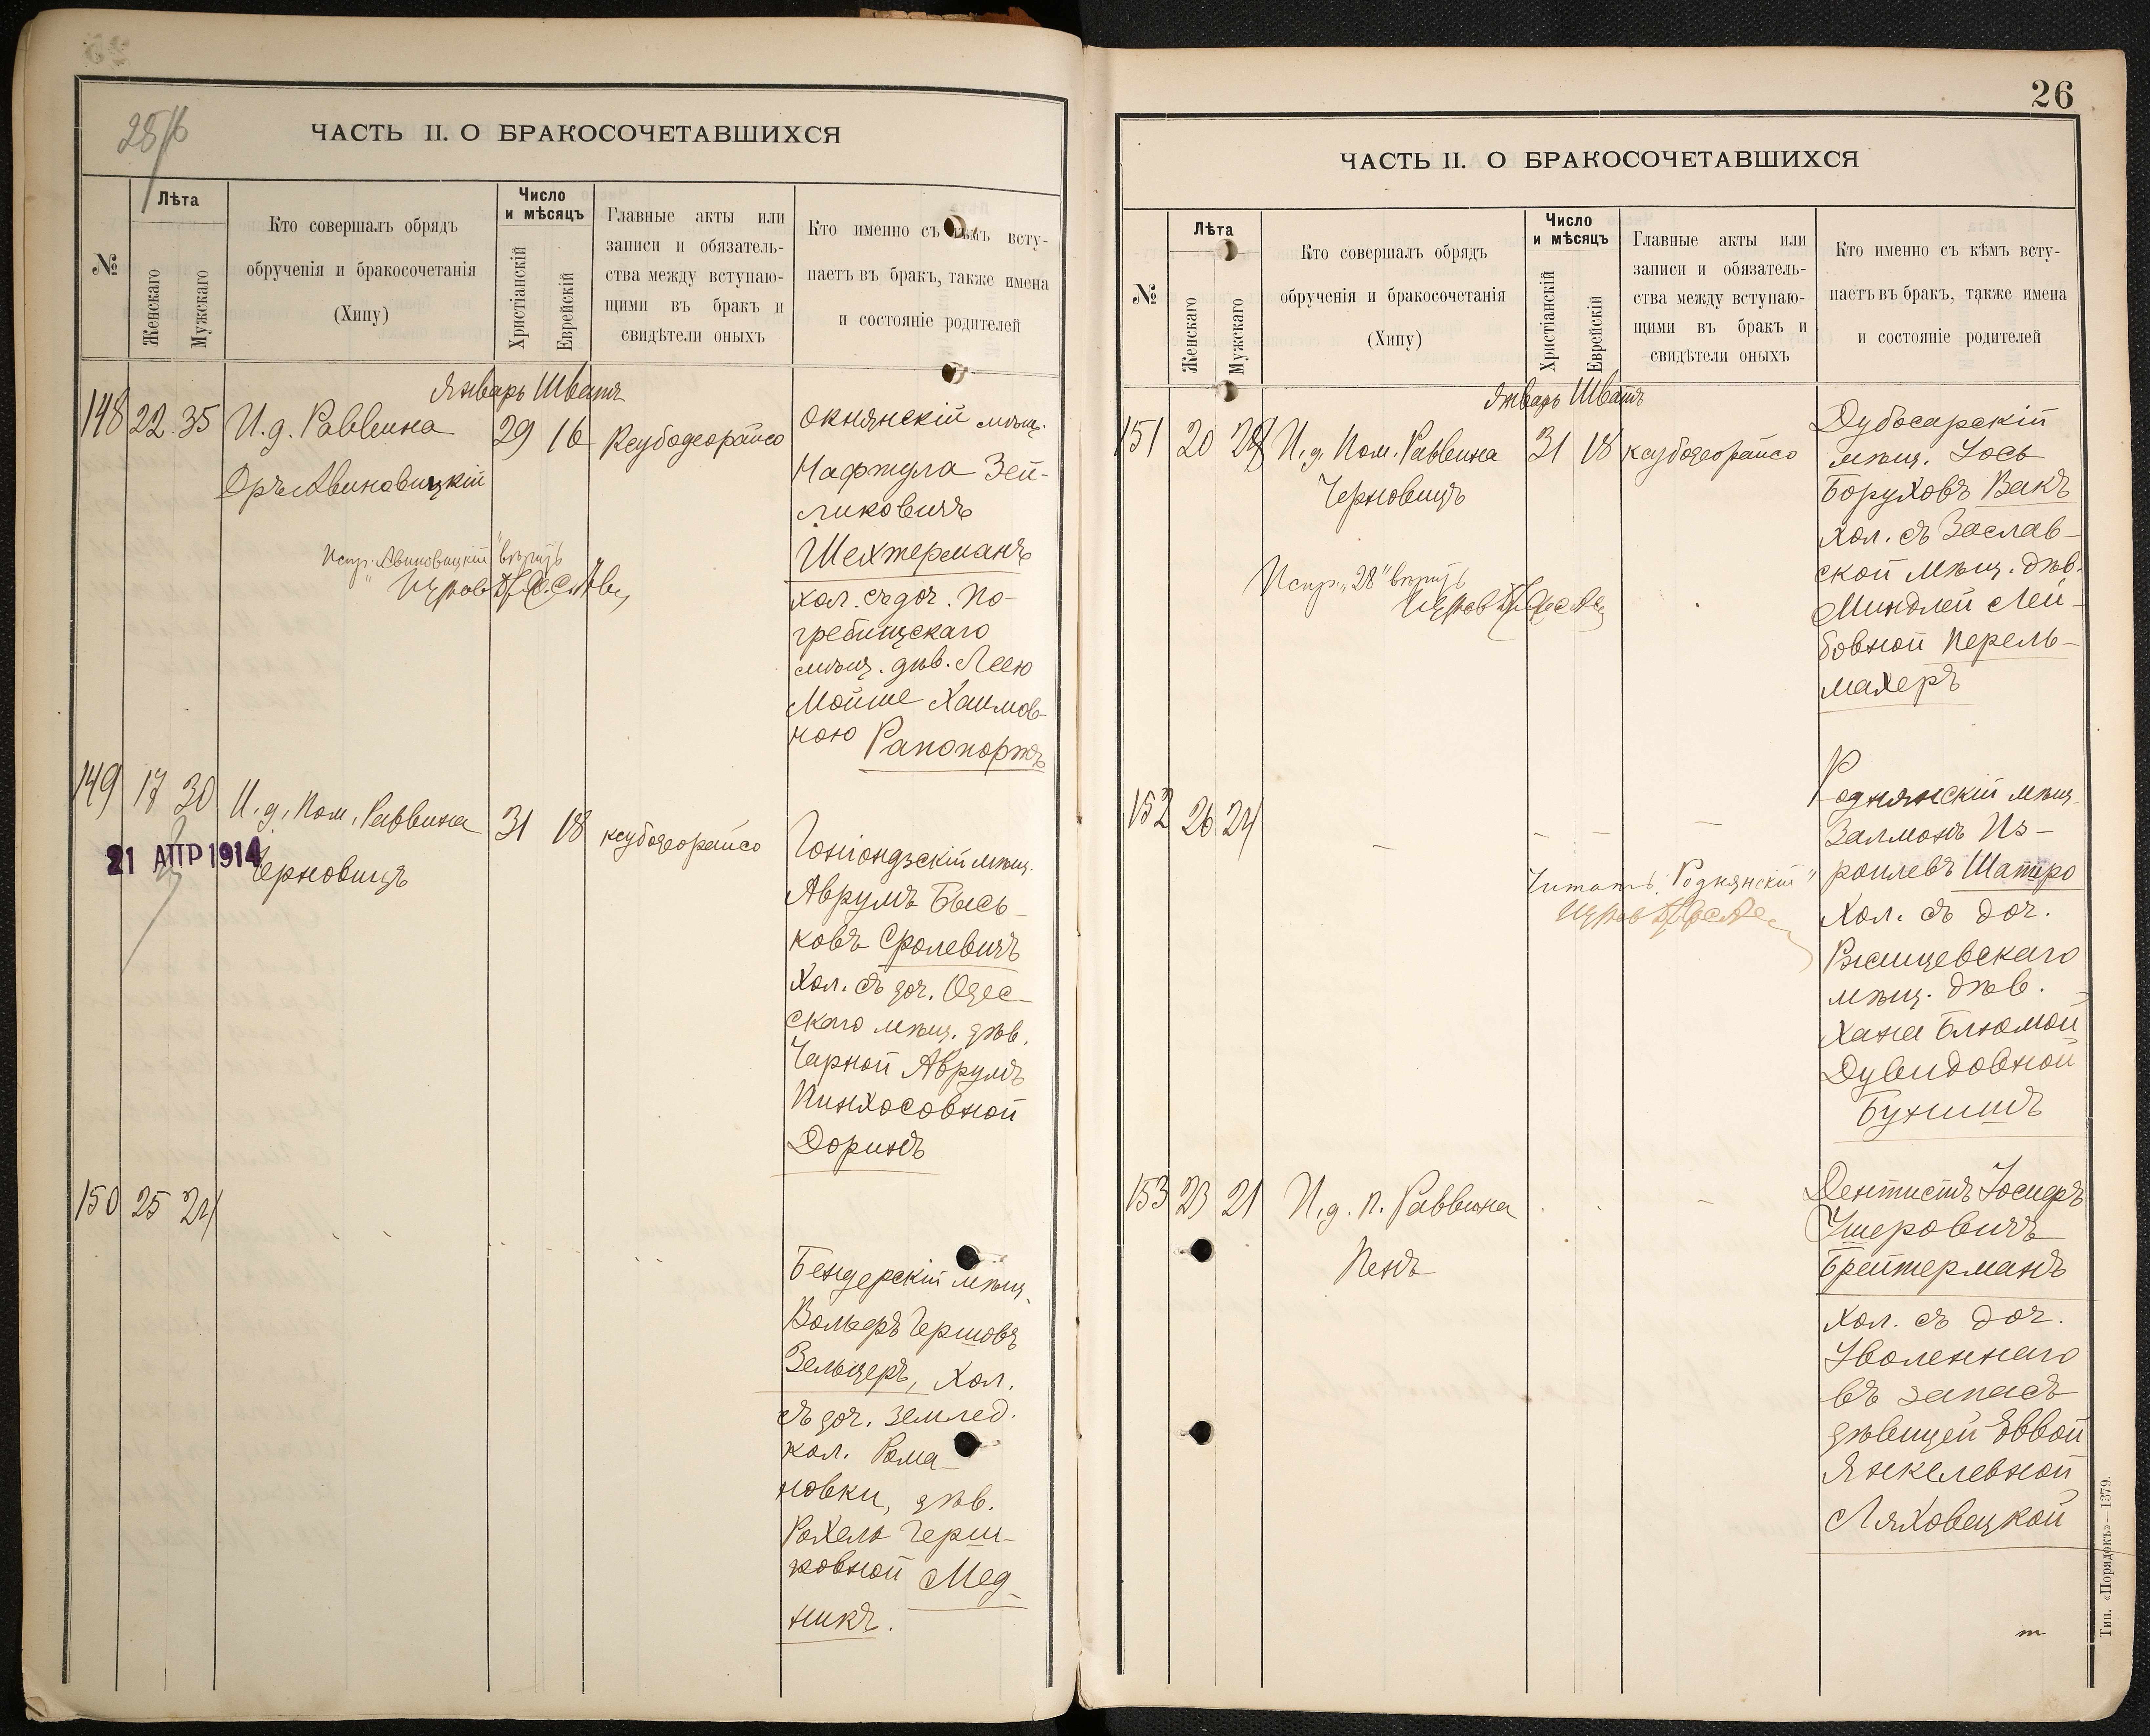 ЧАСТЬ II. О БРАКОСОЧЕТАВШИХСЯ
№
Лѣта
Женскаго
Мужскаго
Кто совершалъ обрядъ
обрученія и бракосочетанія
(Хипу)
Число
и мѣсяцъ
Христіанскій
Еврейскій
Главные акты или
записи и обязатель-
ства между вступаю-
щими въ бракъ и
свидѣтели оныхъ
Кто именно съ кѣмъ всту-
паетъ въ бракъ, также имена
и состояніе родителей
Январь Шватъ
148 22 35 И.д. Раввина 29 16 Ксубодеорайсо
Оръ Авиновицкій
Испр. "Авиновицкій" вѣрить
окнянскій мѣщ.
Нафтула Зей-
ликовичъ
Шехтерманъ
хол. съ доч. По-
гребищскаго
мѣщ. дѣв. Леею
Мойше Хаимов-
ною Рапопортъ
149 17 30 И.д. Пом. Раввина 31 18 ксубодеорайсо
21 АПР 1914
Черновицъ
Гоніондзскій мѣщ.
Аврумъ Бысь-
ковъ Сролевичъ
Хол. съ доч. Одес-
скаго мѣщ. дѣв.
Чарной Аврумъ
Пинхосовной
Доринъ
150 25 24
Бендерскій мѣщ.
Вольфъ Гершовъ
Зельцеръ, Хол.
съ доч. землед.
кол. Рома-
новки, дѣв.
Рахель Герш-
ковной Мед-
никъ.
26
ЧАСТЬ II. О БРАКОСОЧЕТАВШИХСЯ
№
Лѣта
Женскаго
Мужскаго
Кто совершалъ обрядъ
обрученія и бракосочетанія
(Хипу)
Число
и мѣсяцъ
Христіанскій
Еврейскій
Главные акты или
записи и обязатель-
ства между вступаю-
щими въ бракъ и
свидѣтели оныхъ
Кто именно съ кѣмъ всту-
паетъ въ бракъ, также имена
и состояніе родителей
Январь Шватъ
151 20 28 И.д. Пом. Раввина 31 18 ксубодеорайсо
Черновицъ
Испр. "28" вѣрить
Дубосарскій
мѣщ. Іось
Боруховъ Вакъ
хол. съ Заслав-
ской мѣщ. дѣв.
Миндлей Лей-
бовной Перель-
махеръ
152 26 24
Читать "Роднянскій"
Роднянскій мѣщ.
Залмонъ Из-
роилевъ Шапиро
Хол. съ доч.
Ржищевскаго
мѣщ. дѣв.
Хана Блюмой
Дувидовной
Бухшидъ
153 23 21 И.д. п. Раввина
Пенъ
Дентистъ Іосифъ
Ушеровичъ
Брейтерманъ
Хол. съ доч.
Уволеннаго
въ запасъ
дѣвицей Еввой
Янкелевной
Ляховецкой
Тип. «Порядокъ»—1379.